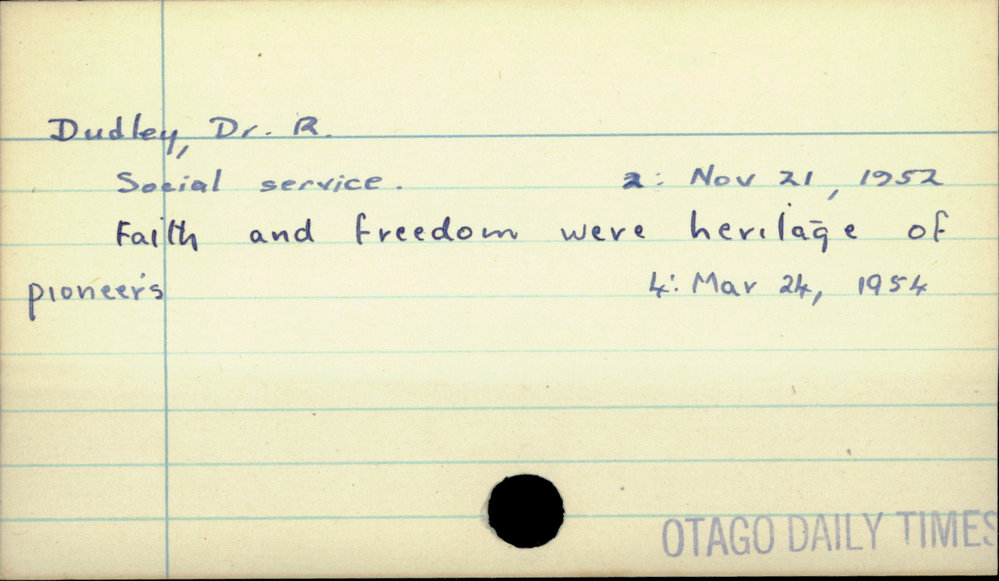 Dudley, Dr. R.
Social service. 2: Nov 21, 1952
Faith and freedom were heritage of
pioneers 4: Mar 24, 1954
OTAGO DAILY TIMES